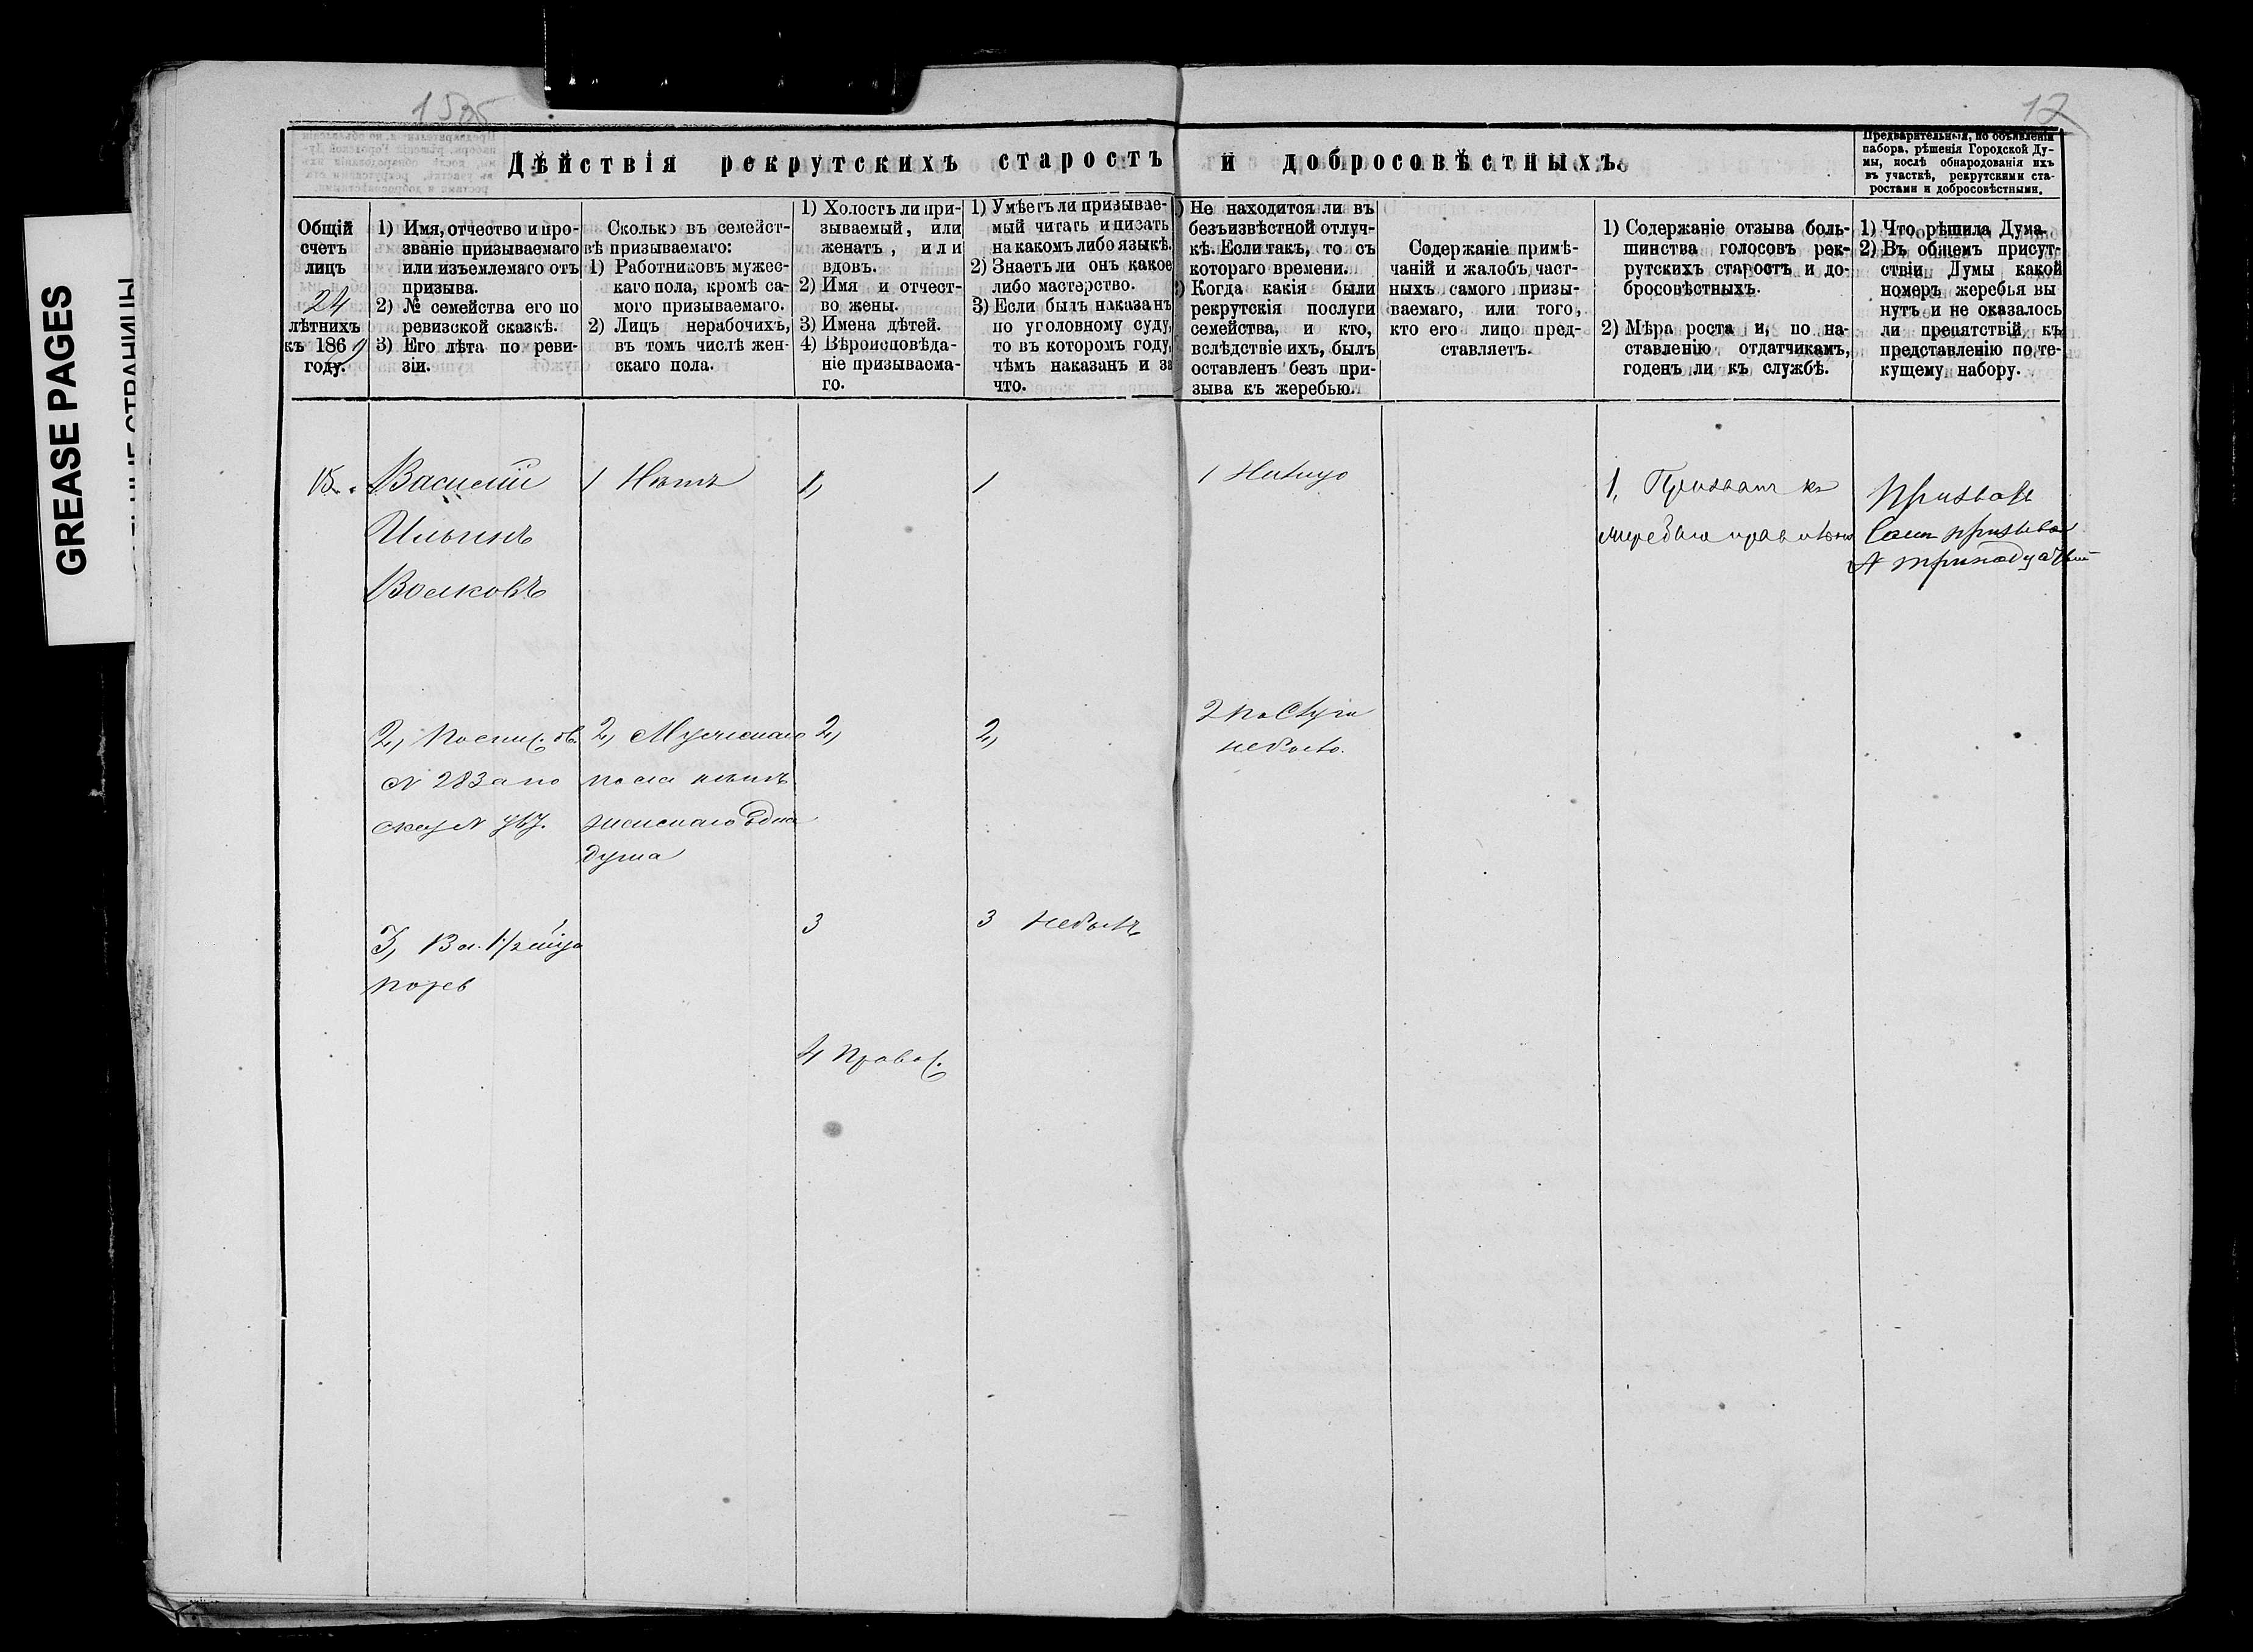 GREASE PAGES
12
Дѣйствія рекрутскихъ старостъ и добросовѣстныхъ.
Предварительныя, по объявленіи
набора, рѣшенія Городской Ду-
мы, послѣ обнародованія ихъ
въ участкѣ, рекрутскими ста-
ростами и добросовѣстными.
Общій
счетъ
лицъ
24
лѣтнихъ
къ 1869
году.
1) Имя, отчество и про-
званіе призываемаго
или изъемлемаго отъ
призыва.
2) № семейства его по
ревизской сказкѣ.
3) Его лѣта по реви-
зіи.
Сколько въ семейст-
вѣ призываемаго:
1) Работниковъ мужес-
каго пола, кромѣ са-
мого призываемаго.
2) Лицъ нерабочихъ,
въ томъ числѣ жен-
скаго пола.
1) Холостъ ли при-
зываемый, или
женатъ, или
вдовъ.
2) Имя и отчест-
во жены.
3) Имена дѣтей.
4) Вѣроисповѣда-
ніе призываема-
го.
1) Умѣетъ ли призывае-
мый читать и писать
на какомъ либо языкѣ.
2) Знаетъ ли онъ какое
либо мастерство.
3) Если былъ наказанъ
по уголовному суду,
то въ которомъ году,
чѣмъ наказанъ и за
что.
1) Не находится ли въ
безъизвѣстной отлуч-
кѣ. Если такъ, то съ
котораго времени.
2) Когда какія были
рекрутскія послуги
семейства, и кто,
вслѣдствіе ихъ, былъ
оставленъ безъ при-
зыва къ жеребью.
Содержаніе примѣ-
чаній и жалобъ, част-
ныхъ самого призы-
ваемаго, или того,
кто его лицо пред-
ставляетъ.
1) Содержаніе отзыва боль-
шинства голосовъ рек-
рутскихъ старостъ и до-
бросовѣстныхъ.
2) Мѣра роста и, по на-
ставленію отдатчикамъ,
годенъ ли къ службѣ.
1) Что рѣшила Дума.
2) Въ общемъ присут-
ствіи Думы какой
номеръ жеребья вы
нутъ и не оказалось
ли препятствій къ
представленію по те-
кущему набору.
15.
Василій
Ильинъ
Волковъ
2,
№ 283 а по
3,
по рев
1 Нѣтъ
2, Мужескаго
пола нѣтъ
женскаго одна
душа
1,
2,
3
4 Правос.
1
2,
3 небылъ
1
2 послуги
небыло.
1, Призвать къ
жеребью
Призвать